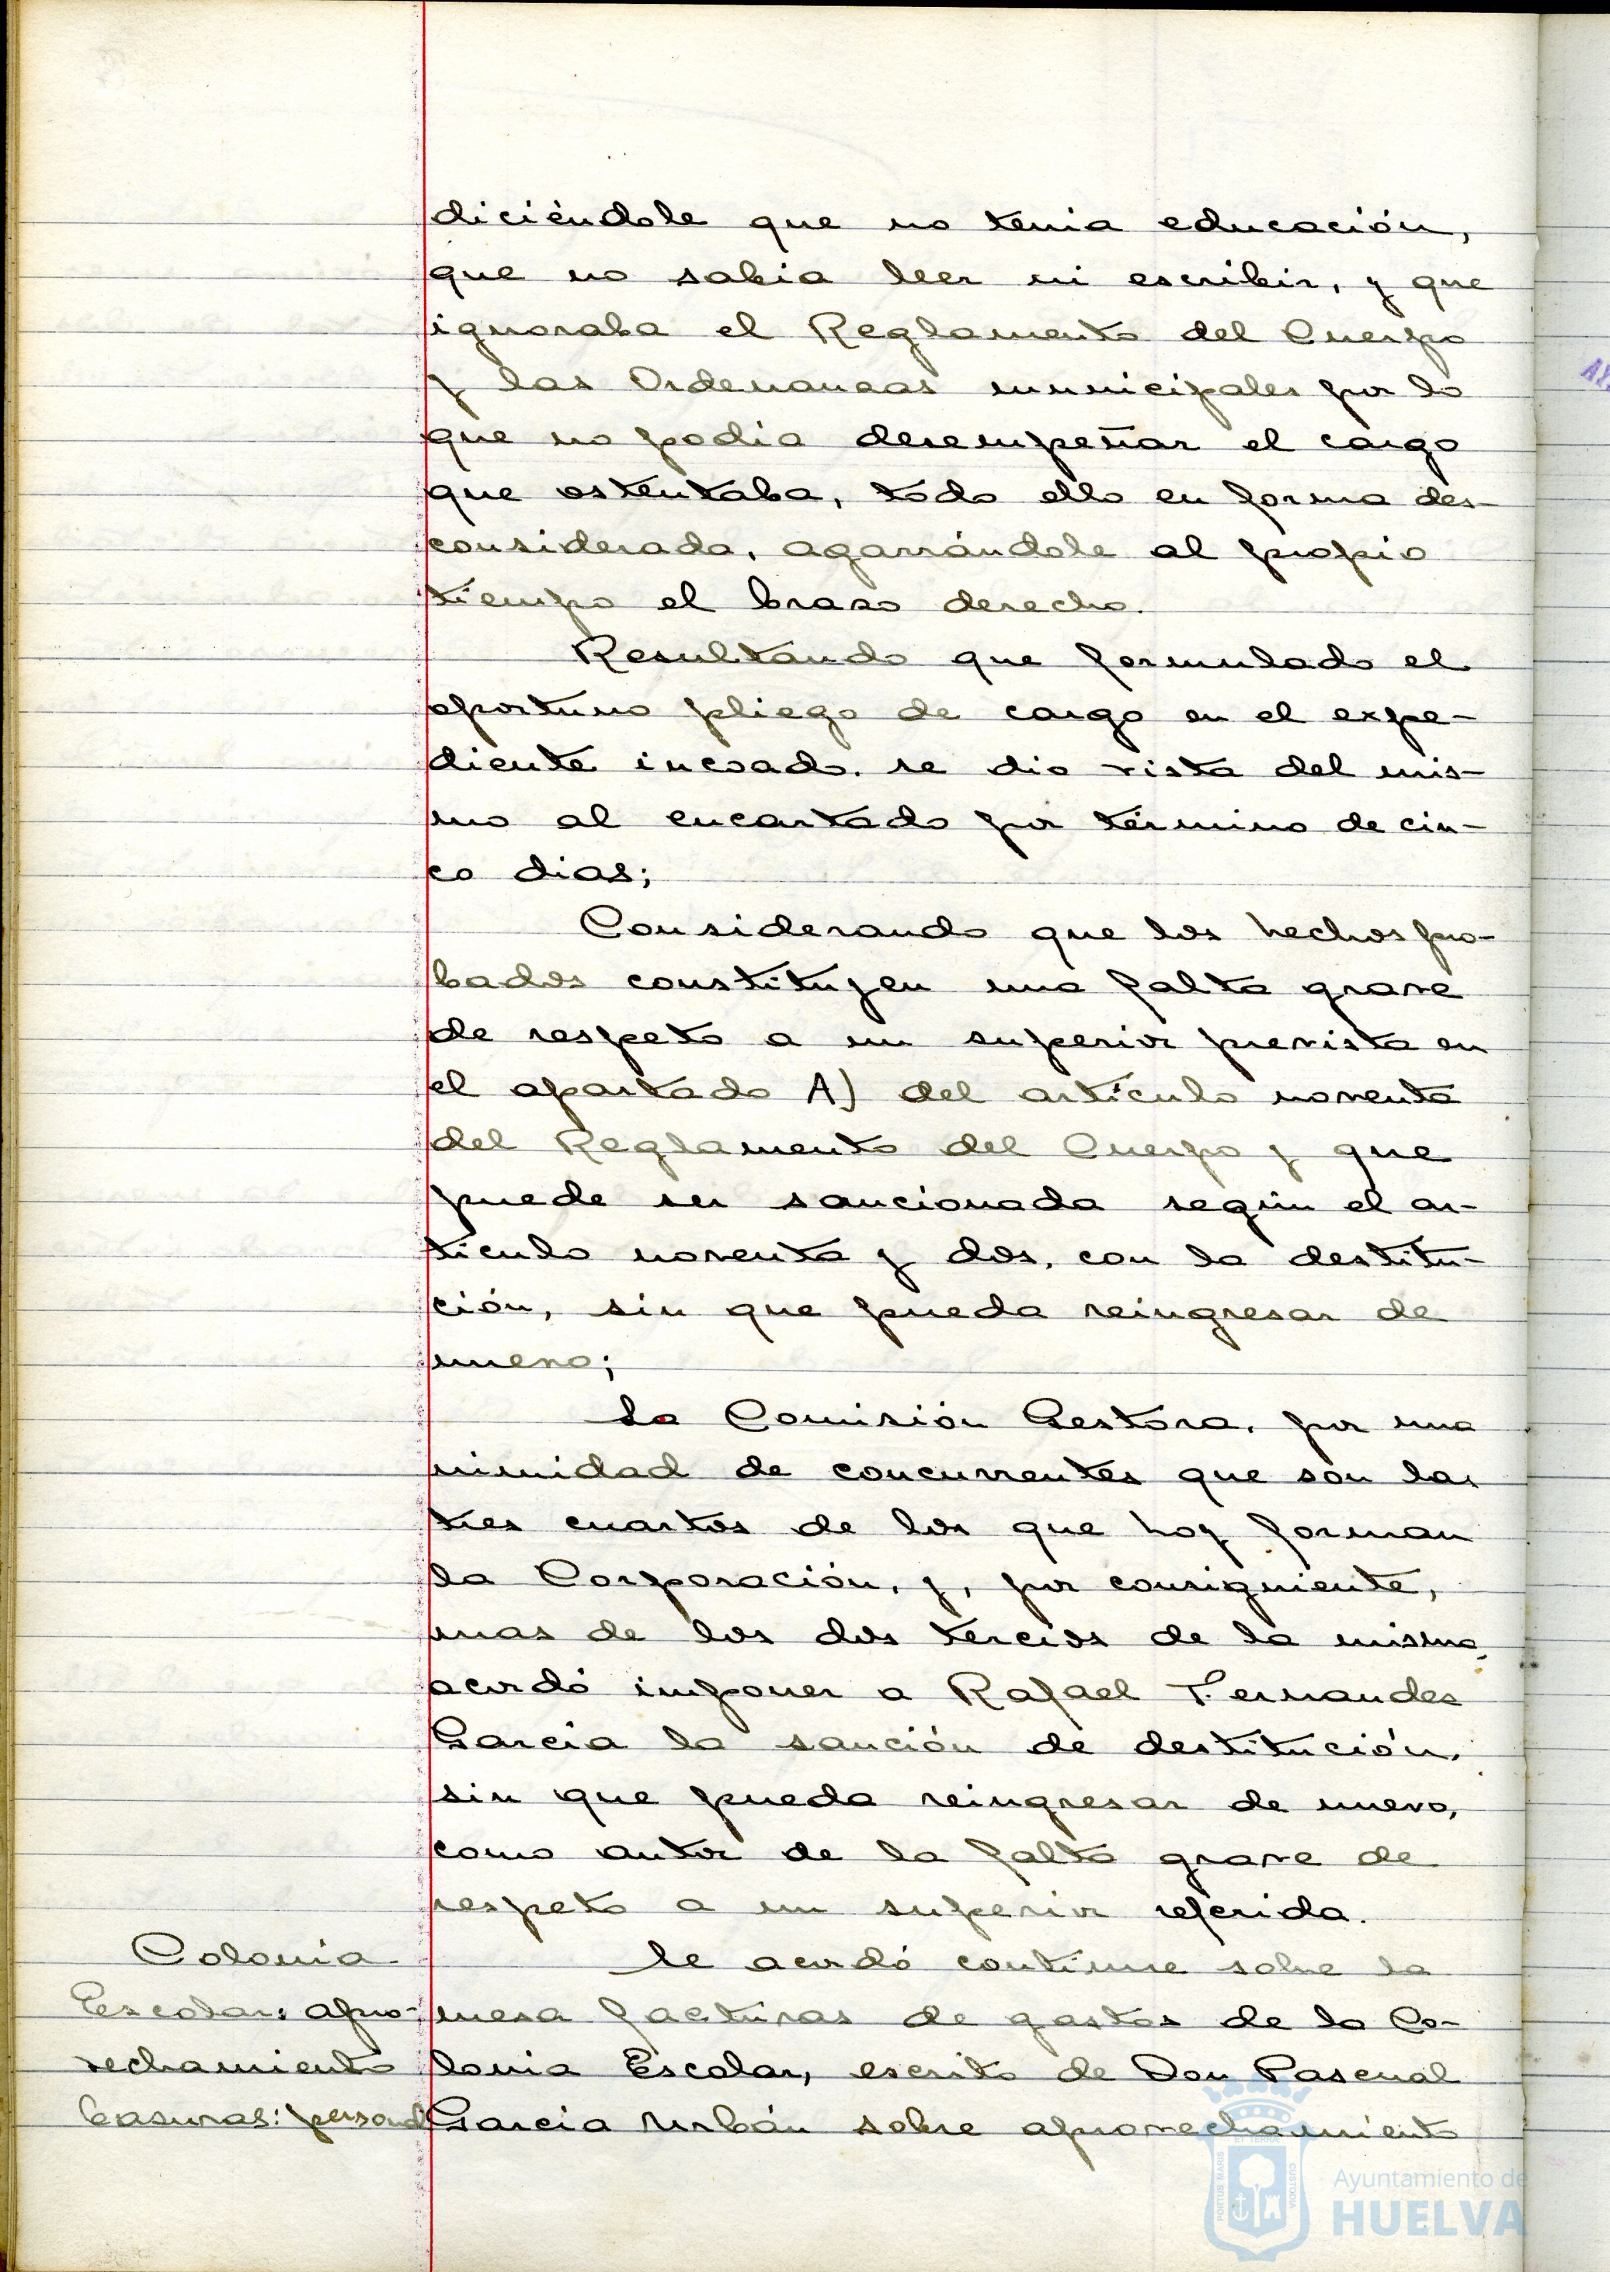 diciéndole que no tenia educación,
que no sabia leer ni escribir, y que
ignoraba el Reglamento del Cuerpo
y las Ordenanzas municipales por lo
que no podia desempeñar el cargo
que ostentaba, todo ello en forma des-
considerada, agarrándole al propio
tiempo el brazo derecho.
Resultando que formulado el
oportuno pliego de cargo en el expe-
diente incoado. se dio vista del mis-
mo al encartado por término de cin-
co dias;
Considerando que los hechos pro-
bados constituyen una falta grave
de respeto a un superior prevista en
el apartado A) del artículo noventa
del Reglamento del Cuerpo y que
puede ser sancionada según el ar-
tículo noventa y dos, con la destitu-
ción, sin que pueda reingresar de
nuevo;
La Comisión Gestora, por una
nimidad de concurrentes que son las
tres cuartos de los que hoy forman
la Corporación, y, por consiguiente,
mas de los dos tercios de la misma,
acordó imponer a Rafael Fernandez
Garcia la sanción de destitución,
sin que pueda reingresar de nuevo,
como autor de la falta grave de
respeto a un superior referida.
Colonia
Escolar: apro-
vechamiento
basuras: personal
Se acordó continue sobre la
mesa facturas de gastos de la Co-
lonia Escolar, escrito de Don Pascual
Garcia Urbán sobre aprovechamiento
PORTUS MARIS
ET TERRAE
CUSTODIA
Ayuntamiento de
HUELVA